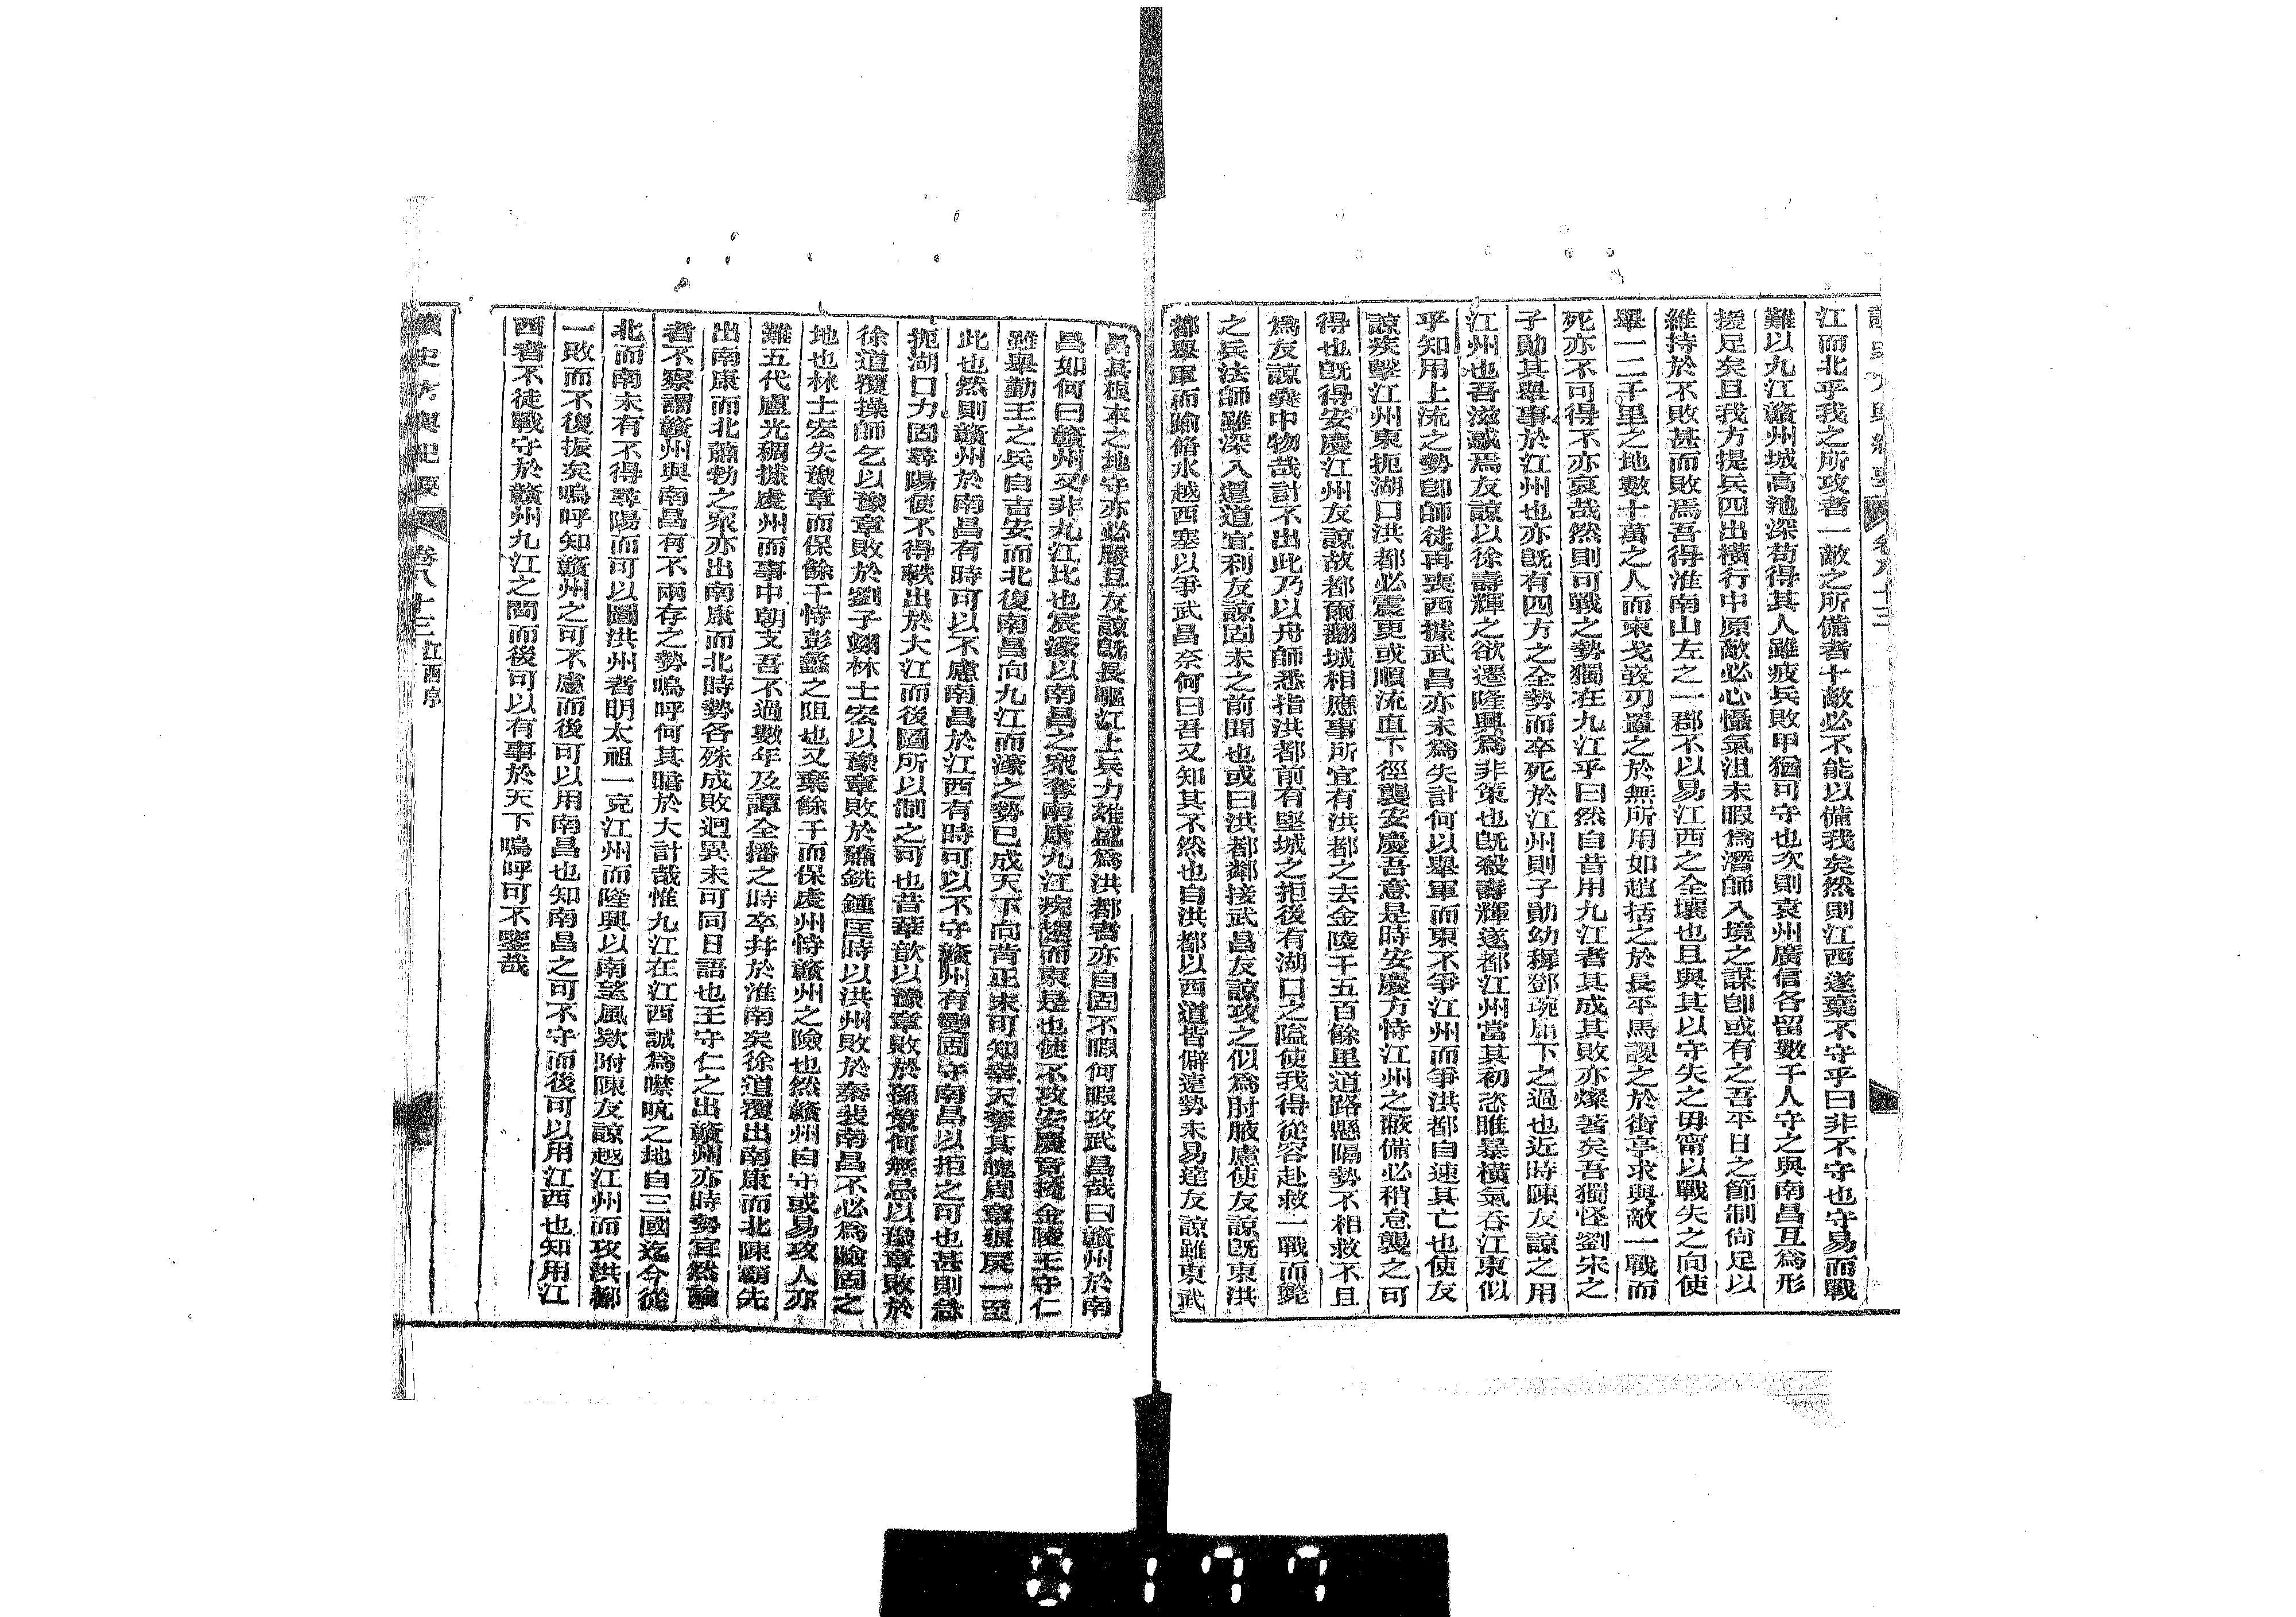 讀史方輿紀要 卷八十三
江而北乎我之所攻者一敵之所備者十敵必不能以備我矣然則江西遂棄不守乎曰非不守也守易而戰
難以九江贛州城高池深苟得其人雖疲兵敗甲猶可守也次則袁州廣信各留數千人守之與南昌互為形
援足矣且我方提兵四出橫行中原敵必心懾氣沮未暇為潛師入境之謀卽或有之吾平日之節制尙足以
維持於不敗甚而敗焉吾得淮南山左之一郡不以易江西之全壤也且與其以守失之毋甯以戰失之向使
舉一二千里之地數十萬之人而束戈弢刃置之於無所用如趙括之於長平馬謖之於街亭求與敵一戰而
死亦不可得不亦哀哉然則可戰之勢獨在九江乎曰然自昔用九江者其成其敗亦燦著矣吾獨怪劉宋之
子勛其舉事於江州也亦旣有四方之全勢而卒死於江州則子勛幼穉鄧琬庸下之過也近時陳友諒之用
江州也吾滋惑焉友諒以徐壽輝之欲遷隆興為非策也旣殺壽輝遂都江州當其初恣睢暴橫氣吞江東似
乎知用上流之勢卽師徒再喪西據武昌亦未為失計何以舉軍而東不爭江州而爭洪都自速其亡也使友
諒疾擊江州東扼湖口洪都必震更或順流直下徑襲安慶吾意是時安慶方恃江州之蔽備必稍怠襲之可
得也旣得安慶江州友諒故都爾翻城相應事所宜有洪都之去金陵千五百餘里道路懸隔勢不相救不且
為友諒囊中物哉計不出此乃以舟師悉指洪都前有堅城之拒後有湖口之隘使我得從容赴救一戰而斃
之兵法師雖深入還道宜利友諒固未之前聞也或曰洪都鄰接武昌友諒攻之似為肘腋慮使友諒旣東洪
都舉軍而踰脩水越西塞以爭武昌奈何曰吾又知其不然也自洪都以西道皆僻遠勢未易達友諒雖東武
昌其根本之地守亦必嚴且友諒旣長驅江上兵力雄盛為洪都者亦自固不暇何暇攻武昌哉曰贛州於南
昌如何曰贛州又非九江比也宸濠以南昌之衆奪南康九江疾趨而東是也使不攻安慶竟擣金陵王守仁
雖舉勤王之兵自吉安而北復南昌向九江而濠之勢已成天下向背正未可知幸天奪其魄周章狼戾一至
此也然則贛州於南昌有時可以不慮南昌於江西有時可以不守贛州有變固守南昌以拒之可也甚則急
扼湖口力固尋陽使不得軼出於大江而後圖所以制之可也昔華歆以豫章敗於孫策何無忌以豫章敗於
徐道覆操師乞以豫章敗於劉子翊林士宏以豫章敗於蕭銑鍾匡時以洪州敗於秦裴南昌不必為險固之
地也林士宏失豫章而保餘干恃彭蠡之阻也又棄餘干而保虔州恃贛州之險也然贛州自守或易攻人亦
難五代盧光稠據虔州而事中朝支吾不過數年及譚全播之時卒幷於淮南矣徐道覆出南康而北陳霸先
出南康而北蕭勃之衆亦出南康而北時勢各殊成敗迥異未可同日語也王守仁之出贛州亦時勢宜然論
者不察謂贛州與南昌有不兩存之勢嗚呼何其暗於大計哉惟九江在江西誠為噤吭之地自三國迄今從
北而南未有不得尋陽而可以圖洪州者明太祖一克江州而隆興以南望風欵附陳友諒越江州而攻洪都
一敗而不復振矣嗚呼知贛州之可不慮而後可以用南昌也知南昌之可不守而後可以用江西也知用江
西者不徒戰守於贛州九江之間而後可以有事於天下嗚呼可不鑒哉
讀史方輿紀要 卷八十三 江西序
8177